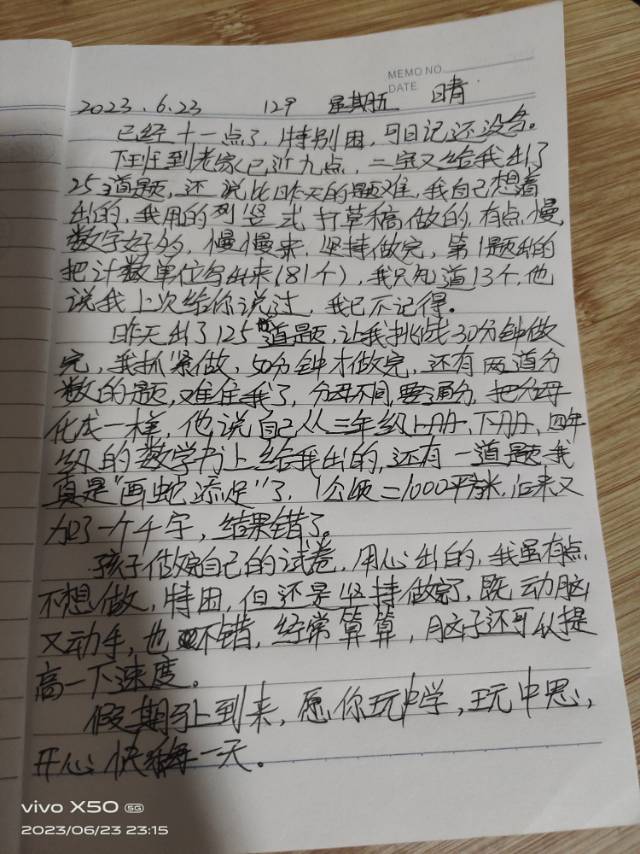 MEMO NO.
DATE
2023.6.23 129 星期五 晴
已经十一点了，特别困，可日记还没写。
下班到老家已近九点，二宝又给我出了
25道题，还说比昨天的题难，我自己想着
出的，我用的列竖式打草稿做的，有点慢
数字好多，慢慢来，坚持做完，第1题出的
把计数单位写出来(81个)，我只知道13个，他
说我上次给你说过，我已不记得。
昨天出了125道题，让我挑战30分钟做
完，我抓紧做，50分钟才做完，还有两道分
数的题，难住我了，分母不同，要通分，把分母
化成一样，他说自己从三年级上册、下册、四年
级的数学书上给我出的，还有一道题我
真是"画蛇添足"了，1公顷=1000平方米，后来又
加了一个千字，结果错了。
孩子做完自己的试卷，用心出的，我虽有点
不想做，特困，但还是坚持做完了，既动脑
又动手，也不错，经常算算，脑子还可以提
高一下速度。
假期马上到来，愿你玩中学，玩中思，
开心快乐每一天。
vivo X50 5G
2023/06/23 23:15